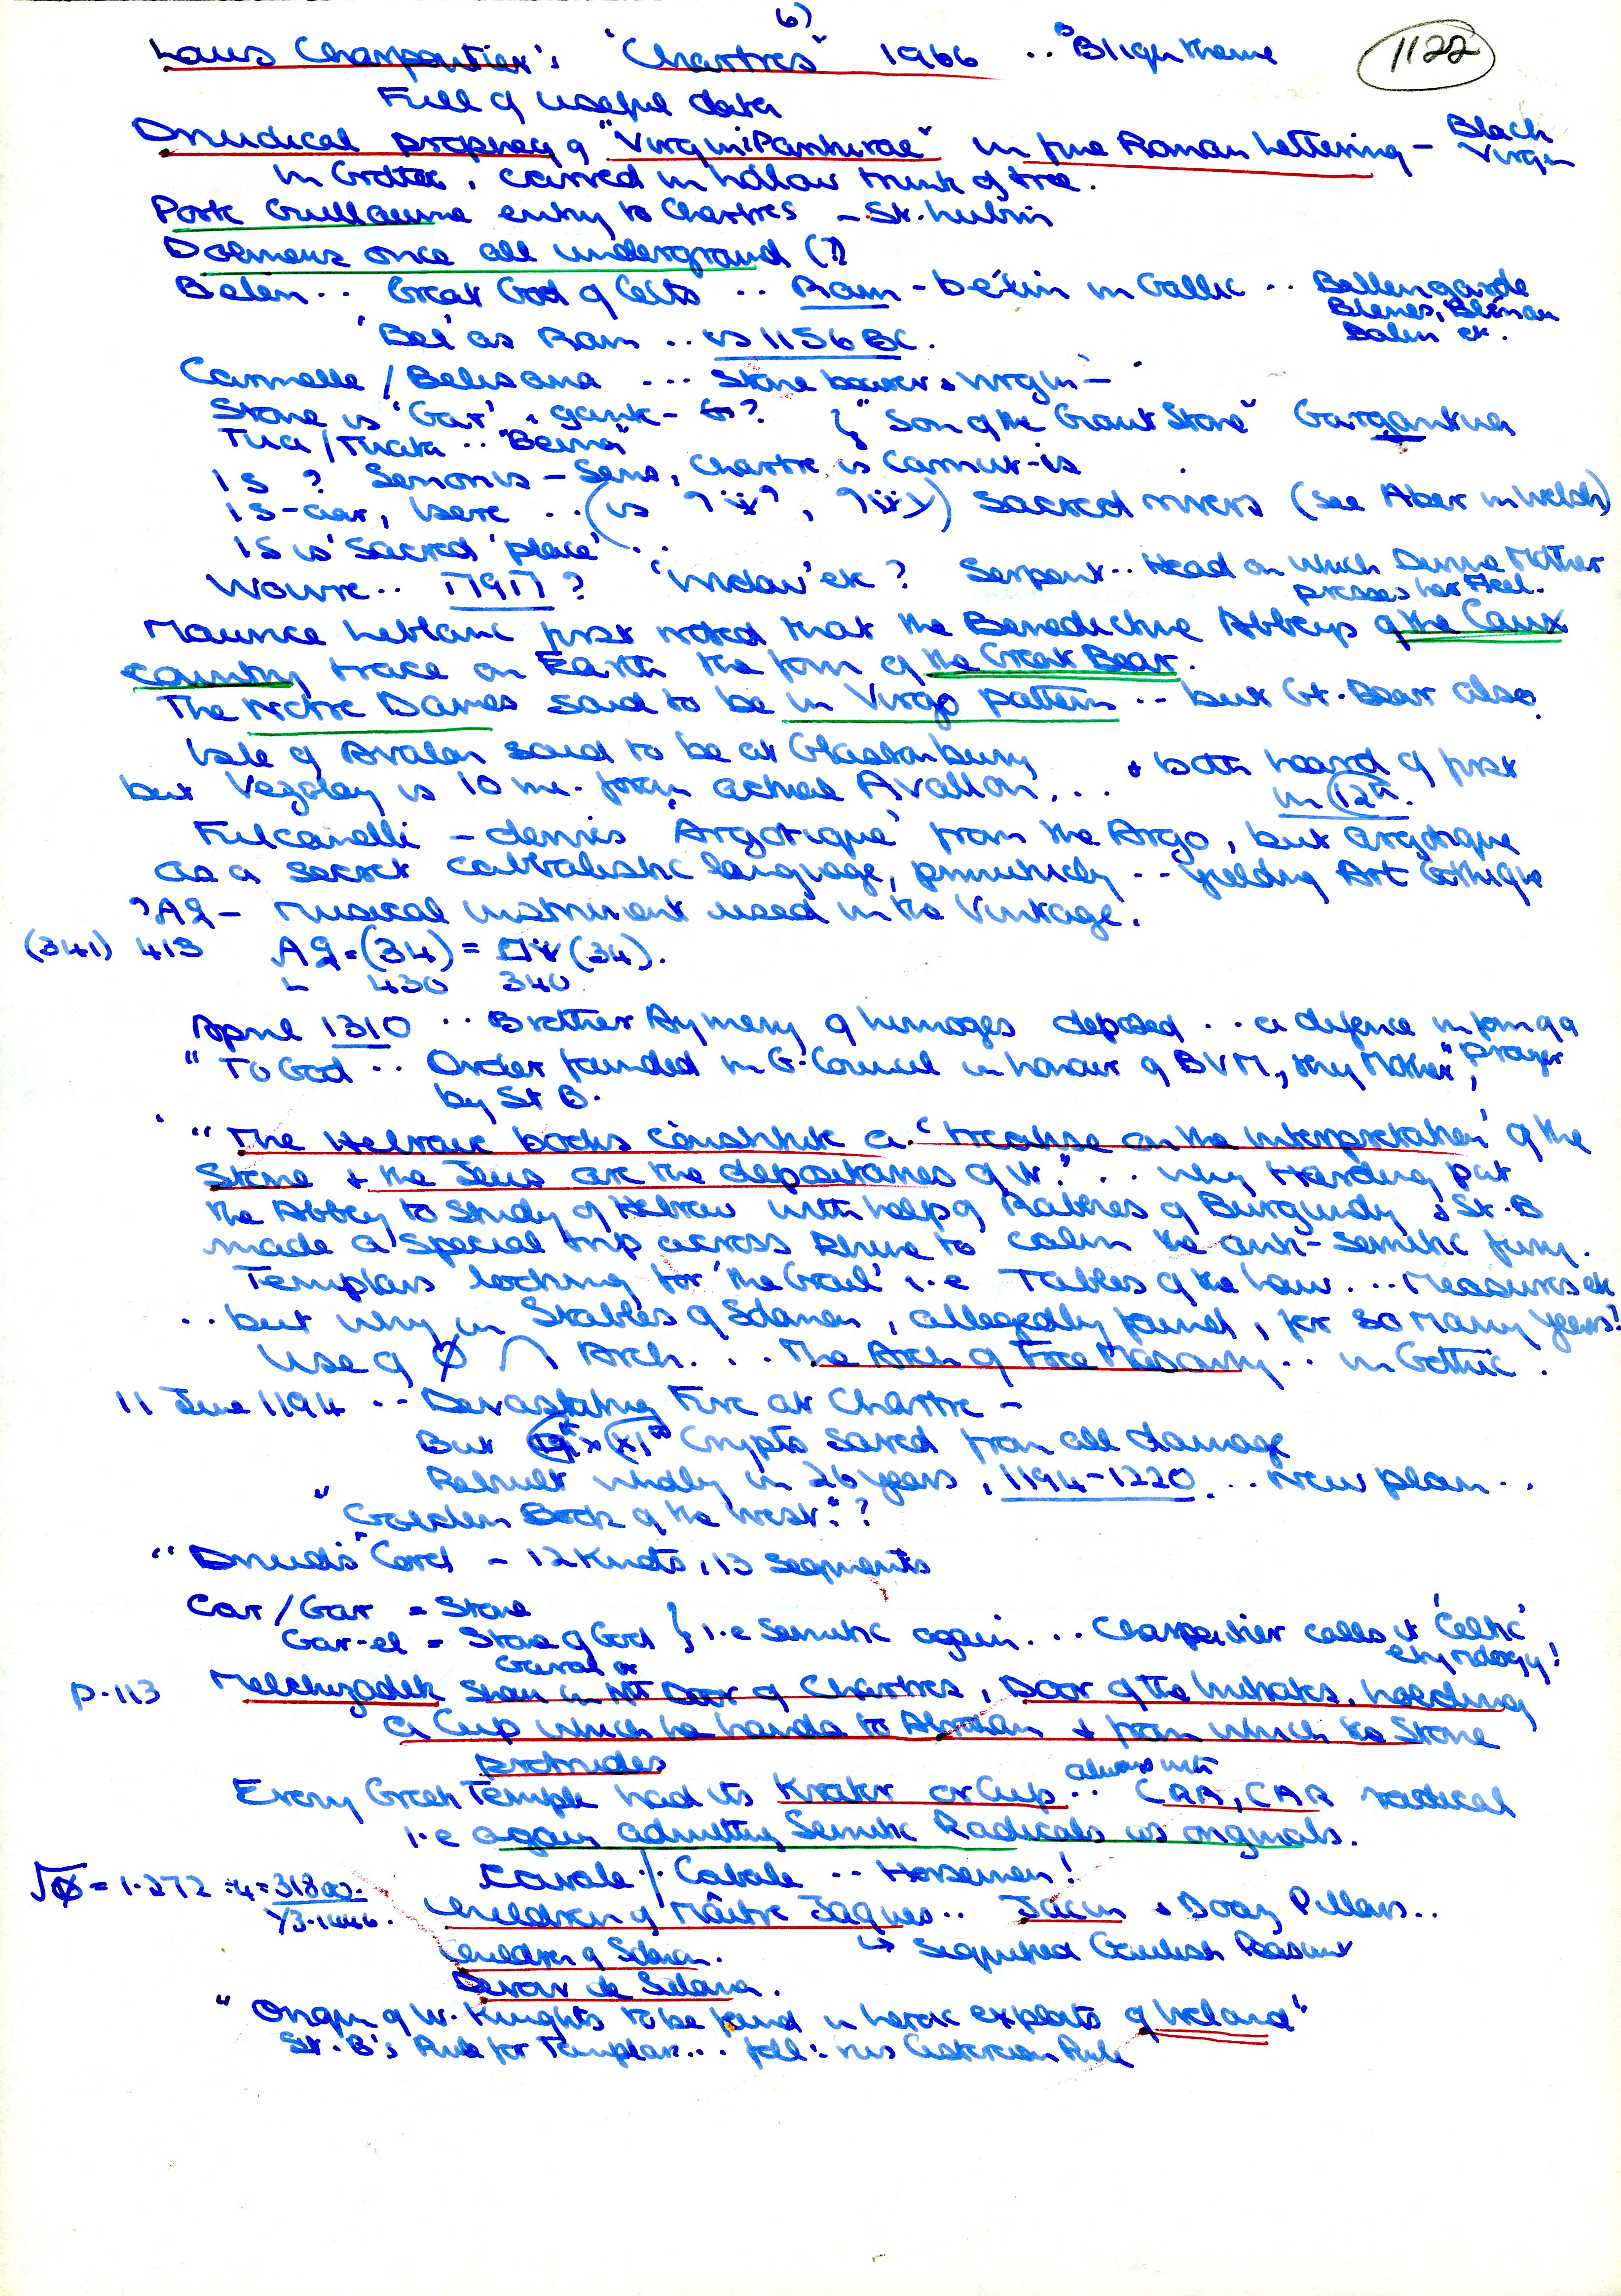 6)
Louis Charpentier's 'Chartres' 1966 .. "Bligh theme
1122
Full of useful data
Druidical prophecy of "Virgini Pariturae" in fine Roman Lettering - Black Virgin
in Grotto, carved in hollow trunk of tree.
Porte Guillaume entry to Chartres - St. Lubin
Dolmens once all underground (?)
Belen .. Great God of Celts .. Ram - bélin in Gallic .. Bellengarde
Blenes, Blénau
Balin etc.
'Bel' as Ram .. is 1156 BC.
Carnelle / Belisama ... Stone bearer & virgin -
Stone is 'Gar', gant - ? } "Son of the Giant Stone" Gargantua
Tua / Tuata .. "Beings"
Is ? Senonis - Sens, Chartre is Carnut-is
Is-aar, Isère .. (is ) Sacred rivers (see Aber in Welsh)
Is is 'sacred 'place' ..
Wouivre .. ? ' etc ? Serpent .. Head on which Divine Mother
presses her Heel.
Maurice Leblanc first noted that the Benedictine Abbeys of the Caux
country trace on Earth the form of the Great Bear.
The Notre Dames said to be in Virgo pattern .. but Gt. Bear also
Isle of Avalon said to be at Glastonbury & both heard of first
but Vezelay is 10 m. from actual Avallon, .. in 12th.
Fulcanelli - derives 'Argotique' from the Argo, but argotique
as a secret cabbalistic language, primitively .. yielding Art Gothique
- Musical instrument used in the Vintage.
(341) 413 = (34) = (34).
430 340
April 1310 .. Brother Aymery of Limoges deposed .. a defence in form of a
prayer
"To God .. Order founded in G. Council in honour of BVM, thy Mother",
by St B.
"The Hebraic books constitute a 'treatise on the interpretation' of the
Stone & the Jews are the depositaries of it." .. why Harding put
the Abbey to Study of Hebrew with help of Rabbies of Burgundy & St. B
made a special trip across Rhine to calm the anti-semitic fury.
Templars looking for 'the Grail' i.e Tables of the Law ... Measures etc
.. but why in Stables of Solomon, allegedly found, for so many years!
Use of Ø ∩ Arch ... The Arch of Free Masonry .. in Gothic.
11 June 1194 .. Devastating Fire at Chartre -
But XIth Crypts saved from all damage
Rebuilt wholly in 26 years, 1194-1220 ... New plan ..
"Golden Book of the West" ?
"Druid's" Cord - 12 Knots, 13 segments
Car / Gar = Stone
Gar-el = Stone of God } i.e Semitic again ... Charpentier calls it 'Celtic'
etymology!
p.113 Melchizedek Shown in Nth Door of Chartres, Door of the Initiates, holding
a Cup which he hands to Abraham & from which the Stone
protrudes
Every Greek Temple had its Krater or Cup .. always with CAR, CAR radical
i.e again admitting Semitic Radicals as originals.
Cavale / Cabale .. Horsemen!
√Ø = 1.272 ÷ 4 = 31800.
Children of Maître Jaques .. Jacin & Boaz Pillars ..
↳ Signified Gaulish Peasant
Children of Solomon.
Devoir de Salama.
"Origin of W. Knights to be found in heroic exploits of Ireland"
St. B's Rule for Templars ... foll: his Cistercian Rule